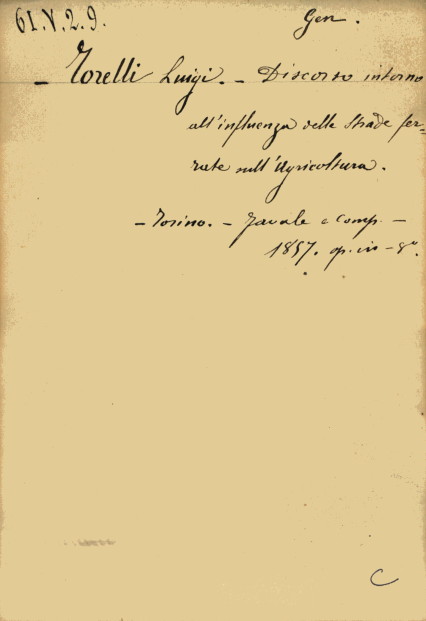 61.V.2.9.
Gen.
– Torelli Luigi. – Discorso intorno
all'influenza delle Strade fer=
rate sull'Agricoltura.
– Torino. – Favale e comp. –
1857. op. in – 8º.
C